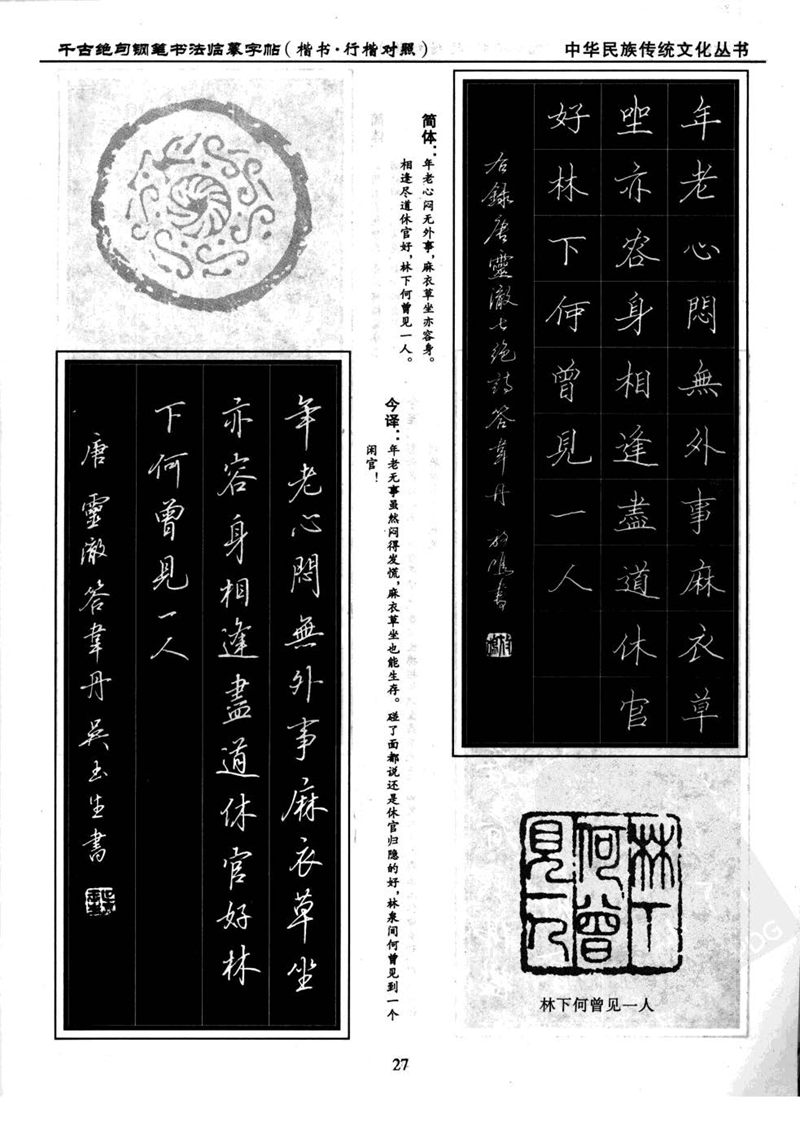 千古绝句钢笔书法临摹字帖（楷书·行楷对照）
中华民族传统文化丛书
年老心悶無外事麻衣草
坐亦容身相逢盡道休官
好林下何曾見一人
右錄唐靈澈七絕詩答韋丹
简体：年老心闷无外事，麻衣草坐亦容身。
相逢尽道休官好，林下何曾见一人。
今译：年老无事虽然闷得发慌，麻衣草坐也能生存。碰了面都说还是休官归隐的好，林泉间何曾见到一个
闲官！
年老心悶無外事麻衣草坐
亦容身相逢盡道休官好林
下何曾見一人
唐靈澈答韋丹吳玉生書
林下
何曾
見一人
林下何曾见一人
27